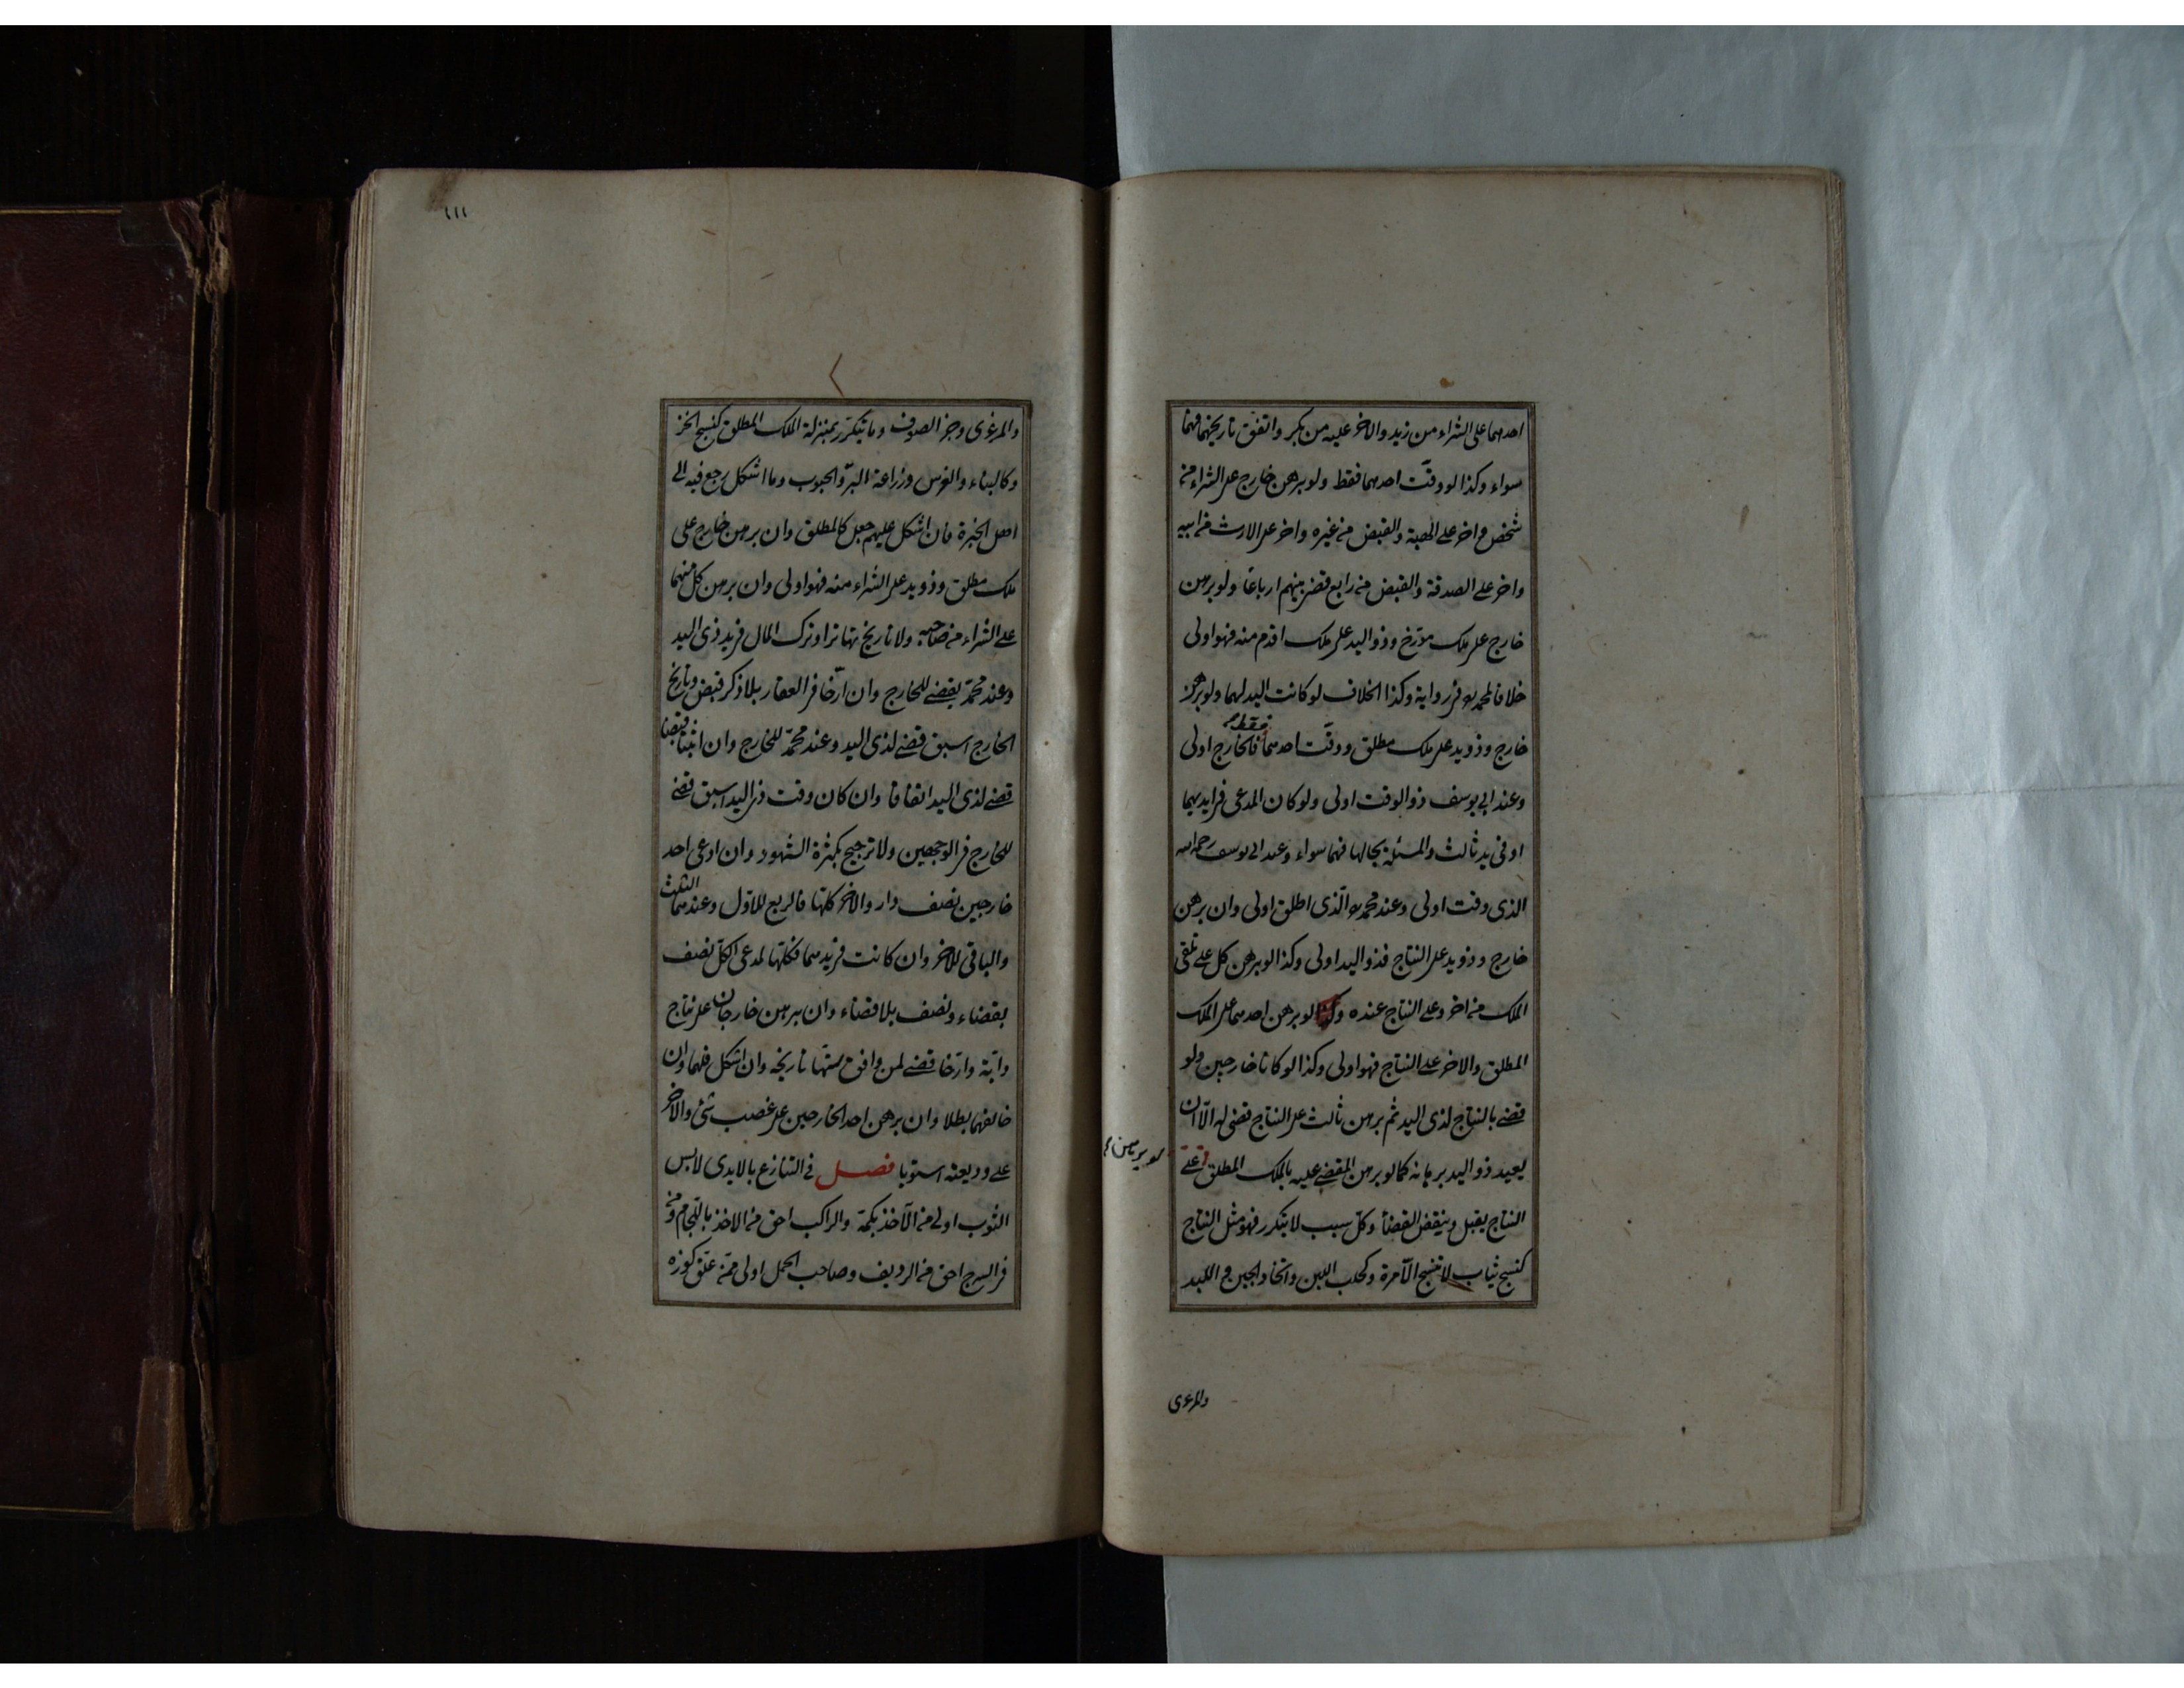 احدهما على الشراء من زيد والاخر عليه من بكر واتفق تاريخهما فهما
سواء وكذا لو وقت احدهما فقط ولو برهن خارج على الشراء من
شخص واخر على الهبة والقبض من غيره واخر على الارث من ابيه
واخر على الصدقة والقبض من رابع قضى بينهم ارباعا ولو برهن
خارج على ملك مؤرخ وذو اليد على ملك اقدم منه فهو اولى
خلافا لمحمد في رواية وكذا الخلاف لو كانت اليد لهما ولو برهن
خارج وذو يد على ملك مطلق ووقت احدهما فقط فالخارج اولى
وعند ابي يوسف ذو الوقت اولى ولو كان المدعى في ايديهما
او في يد ثالث والمسئلة بحالها فهما سواء وعند ابي يوسف رحمه الله
الذى وقت اولى وعند محمد الّذى اطلق اولى وان برهن
خارج وذو يد على النتاج فذو اليد اولى وكذا لو برهن كل على تلقى
الملك من اخر وعلى النتاج عنده وكذا لو برهن احدهما على الملك
المطلق والاخر على النتاج فهو اولى وكذا لو كانا خارجين ولو
قضى بالنتاج لذى اليد ثم برهن ثالث على النتاج قضى له الّا ان
يعيد ذو اليد برهانه كما لو برهن المقضى عليه بالملك المطلق على
النتاج يقبل وينقض القضاء وكلّ سبب لا يتكرر فهو مثل النتاج
كنسج ثياب لا تنسج الّا مرة وكحلب اللبن واتخاذ الجبن واللبد
والمرعزى
١١١
والمرعزى وجز الصوف وما يتكرّر بمنزلة الملك المطلق كنسج الخز
وكالبناء والغرس وزراعة البرّ والحبوب وما اشكل رجع فيه الى
اهل الخبرة فان اشكل عليهم جعل كالمطلق وان برهن خارج على
ملك مطلق وذو يد على الشراء منه فهو اولى وان برهن كل منهما
على الشراء من صاحبه ولا تاريخ تهاترا وترك المال في يد ذى اليد
وعند محمّد يقضى للخارج وان ارّخا في العقار بلا ذكر قبض وتاريخ
الخارج اسبق قضى لذى اليد وعند محمّد للخارج وان اثبتا قبضا
قضى لذى اليد اتفاقا وان كان وقت ذى اليد اسبق قضى
للخارج في الوجهين ولا ترجيح بكثرة الشهود وان ادعى احد
خارجين نصف دار والاخر كلها فالربع للاوّل وعندهما الثلث
والباقى للاخر وان كانت في يدهما فكلها لمدعى الكلّ نصف
بقضاء ونصف بلا قضاء وان برهن خارجان على نتاج
دابّة وارّخا قضى لمن وافق سنّها تاريخه وان اشكل فلهما وان
خالفهما بطلا وان برهن احد الخارجين على غصب شئ والاخر
على وديعته استويا فصل في التنازع بالايدى لابس
الثوب اولى من الآخذ بكمّه والراكب احق من الاخذ باللجام ومن
في السرج احق من الرديف وصاحب الحمل اولى ممّن علّق كوزه